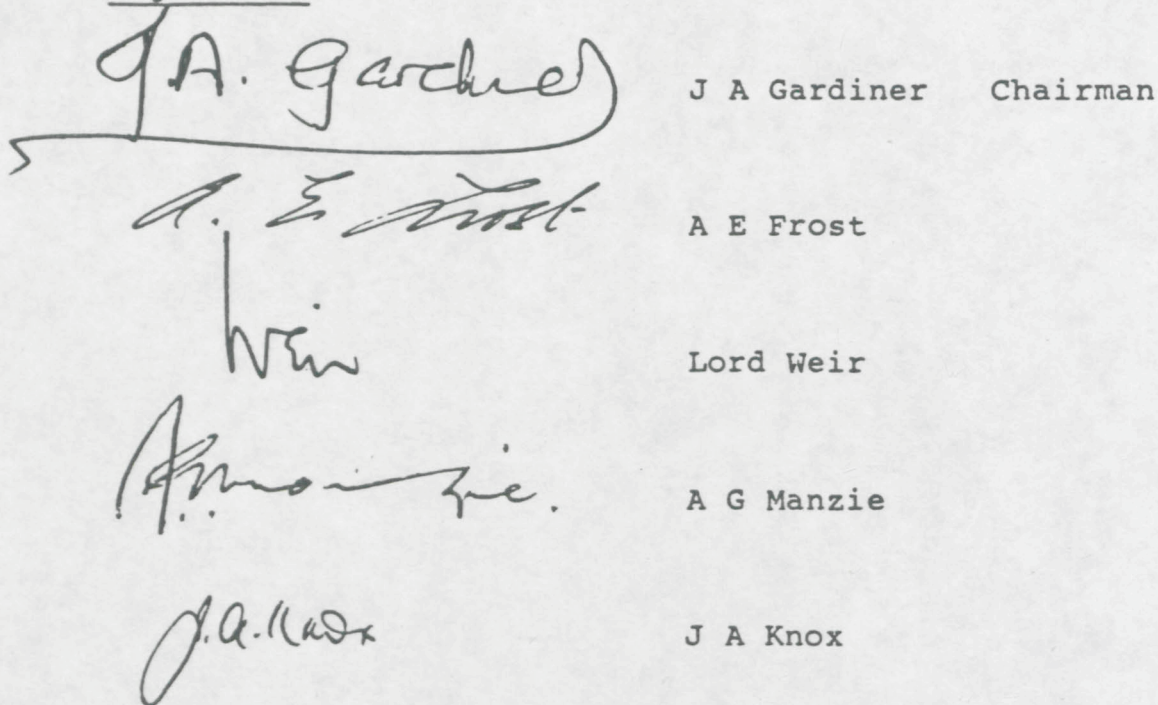 J A. Gardiner J A Gardiner Chairman
A. E Frost A E Frost
Weir Lord Weir
A G Manzie. A G Manzie
J.A. Knox J A Knox